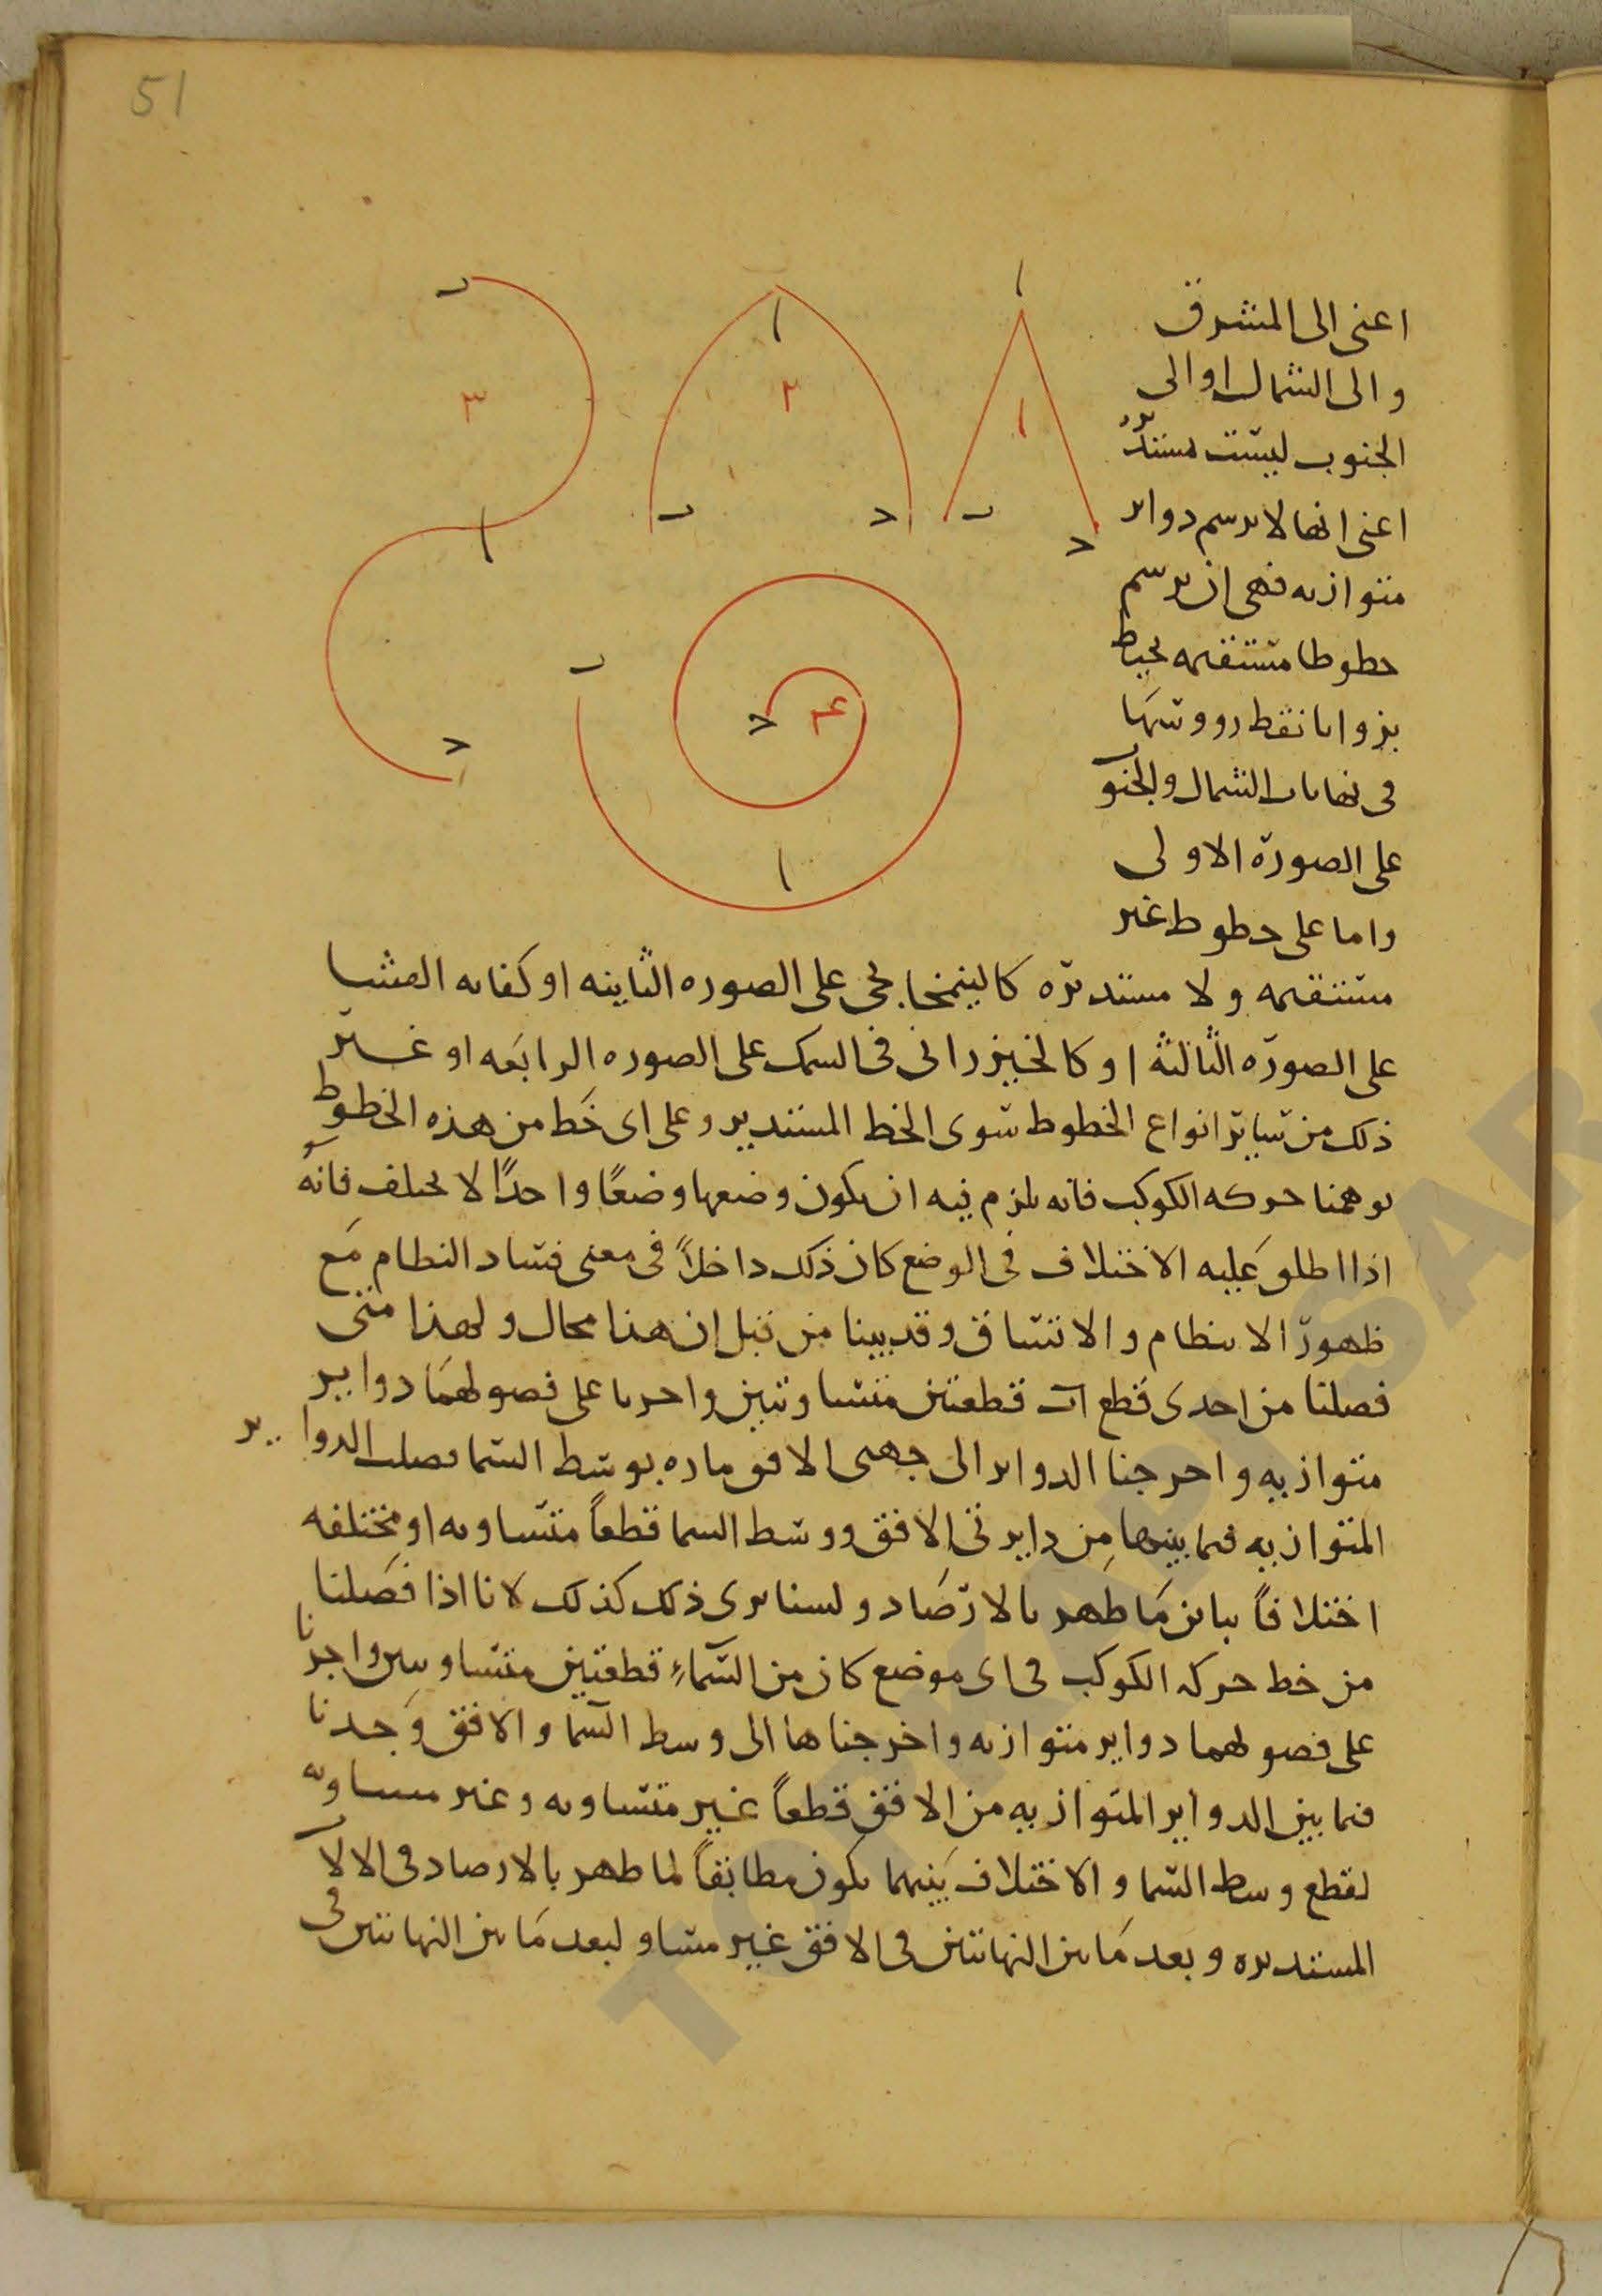 51
ا
ا
ب
ح
ا
٢
ب
ح
ب
٣
ا
ح
ب
ح
۴
ا
اعنى الى المشرق
والى الشمال او الى
الجنوب ليست مستديرة
اعنى انها لا ترسم دواير
متوازيه فهى ان ترسم
خطوطا مستقيمه تحيط
بزوايا نقط رووسها
فى نهايات الشمال والجنوب
على الصورة الاولى
واما على خطوط غير
مستقيمه ولا مستديره على الصوره الثانيه او
على الصوره الثالثة او كالخيزرانى فى السمك على الصوره الرابعه او غير
ذلك من ساير انواع الخطوط سوى الخط المستدير وعلى اى خط من هذه الخطوط
توهمنا حركه الكوكب فانه يلزم فيه ان يكون وضعها وضعًا واحدًا لا يختلف فانه
اذا اطلق عليه الاختلاف فى الوضع كان ذلك داخلاً فى معنى فساد النظام مع
ظهور الانتظام والاتساق وقد بينا من قبل ان هذا محال ولهذا متى
فصلنا من احدى قطع اب قطعتين متساويتين واجرينا على فصولهما دواير
متوازيه واخرجنا الدواير الى جهتى الافق ماره بوسط السما فصلت الدواير
المتوازيه فيما بينها من دايرتى الافق ووسط السما قطعاً متساويه او مختلفه
اختلافاً يباين ما ظهر بالارصاد ولسنا نرى ذلك كذلك لانا اذا فصلنا
من خط حركه الكوكب فى اى موضع كان من السماء قطعتين متساويتين واجرينا
على فصولهما دواير متوازيه واخرجناها الى وسط السما والافق وجدنا
فيما بين الدواير المتوازيه من الافق قطعاً غير متساويه وغير مساويه
لقطع وسط السما والاختلاف بينهما يكون مطابقاً لما ظهر بالارصاد فى الالات
المستديره وبعد ما بين النهايتين فى الافق غير مساو لبعد ما بين النهايتين فى